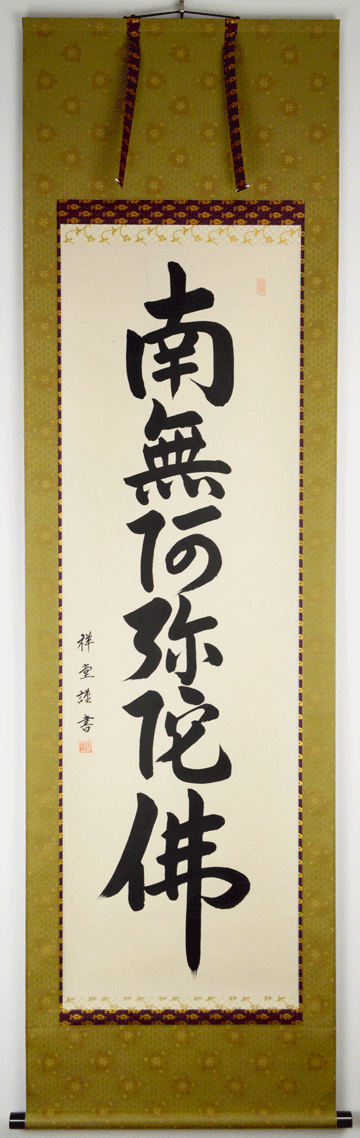 南無阿弥陀佛
祥堂謹書